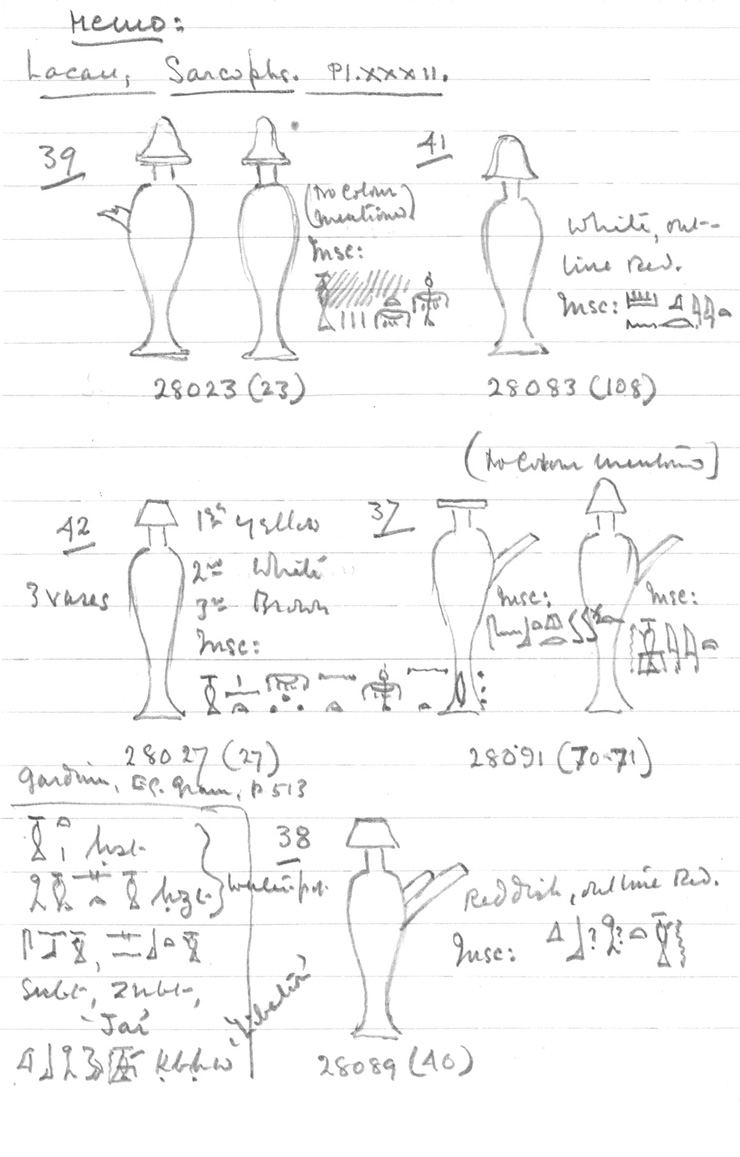 Memo:
Lacau, Sarcophs. Pl. XXXII.
39
(No Colour
mentioned)
Insc:
28023 (23)
41
White, out-
line Red.
Insc:
28083 (108)
42
3 vases
1st Yellow
2nd White
3rd Brown
Insc:
28027 (27)
(No Colour mentioned)
37
Insc:
Insc:
28091 (70-71)
Gardiner, Eg. Gram, p 513
ḥst
ḥzt
water-pot
snbt, znbt,
'Jar'
ḳbḥw 'Libation'
38
Reddish, outline Red.
Insc:
28089 (40)